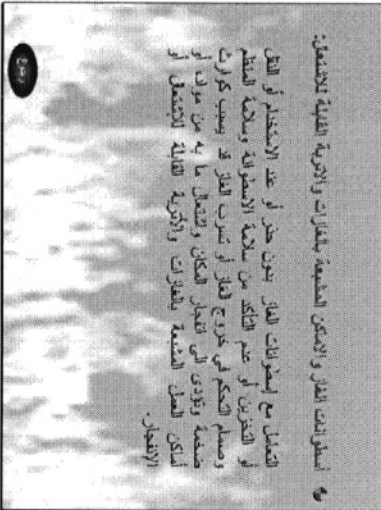 أسطوانات الغاز والأماكن المشبعة بالغازات والأتربة القابلة للاشتعال:
التعامل مع إسطوانات الغاز بدون حذر أو عند الاستخدام أو النقل
أو التخزين أو عدم التأكد من سلامة الاسطوانة وسلامة المنظم
وصمام التحكم في خروج الغاز أو تسرب الغاز قد يسبب كوارث
ضخمة وتؤدى الى انفجار المكان واشتعال ما به من مواد أو
أماكن العمل المشبعة بالغازات والأتربة القابلة للإشتعال أو
الإنفجار.